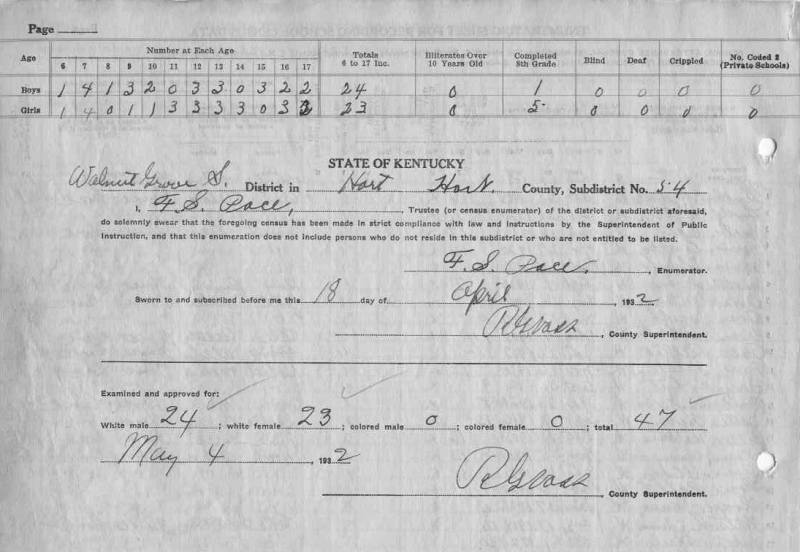 Page
Age Number at Each Age Totals 6 to 17 Inc. Illiterates Over 10 Years Old Completed 8th Grade Blind Deaf Crippled No. Coded 2 (Private Schools)
6 7 8 9 10 11 12 13 14 15 16 17
Boys 1 4 1 3 2 0 3 3 0 3 2 2 24 0 1 0 0 0 0
Girls 1 4 0 1 1 3 3 3 3 0 3 23 0 5 0 0 0 0
STATE OF KENTUCKY
Walnut Grove S. District in Hart Hart County, Subdistrict No. 54
I, F. S. Pace, Trustee (or census enumerator) of the district or subdistrict aforesaid,
do solemnly swear that the foregoing census has been made in strict compliance with law and instructions by the Superintendent of Public
Instruction, and that this enumeration does not include persons who do not reside in this subdistrict or who are not entitled to be listed.
F. S. Pace, Enumerator.
Sworn to and subscribed before me this 18 day of April, 1932
, County Superintendent.
Examined and approved for:
White male 24; white female 23; colored male 0; colored female 0; total 47
May 4, 1932
, County Superintendent.